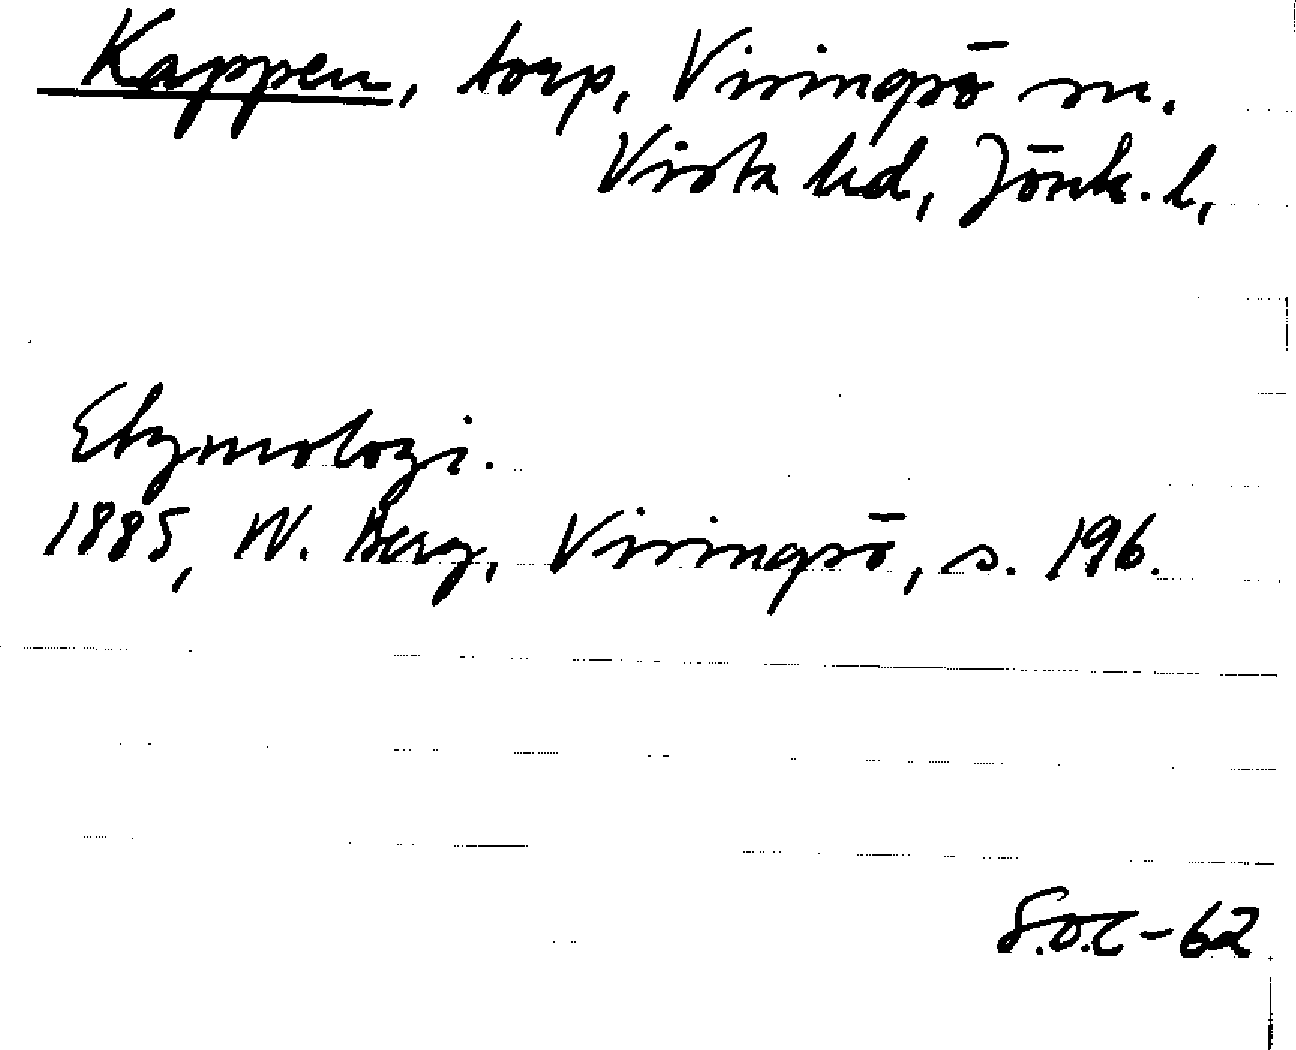 Kappen, torp, Visingsö sn.
Vista hd, Jönk. l,
Etymologi.
1885, W. Berg, Visingsö, s. 196.
S.O.C-62